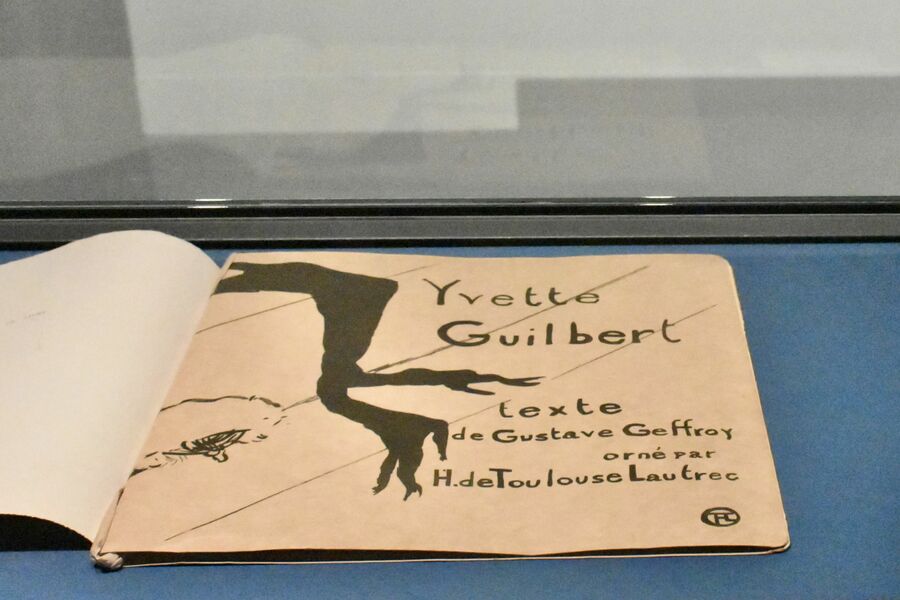 Yvette
Guilbert
texte
de Gustave Geffroy
orné par
H. de Toulouse Lautrec